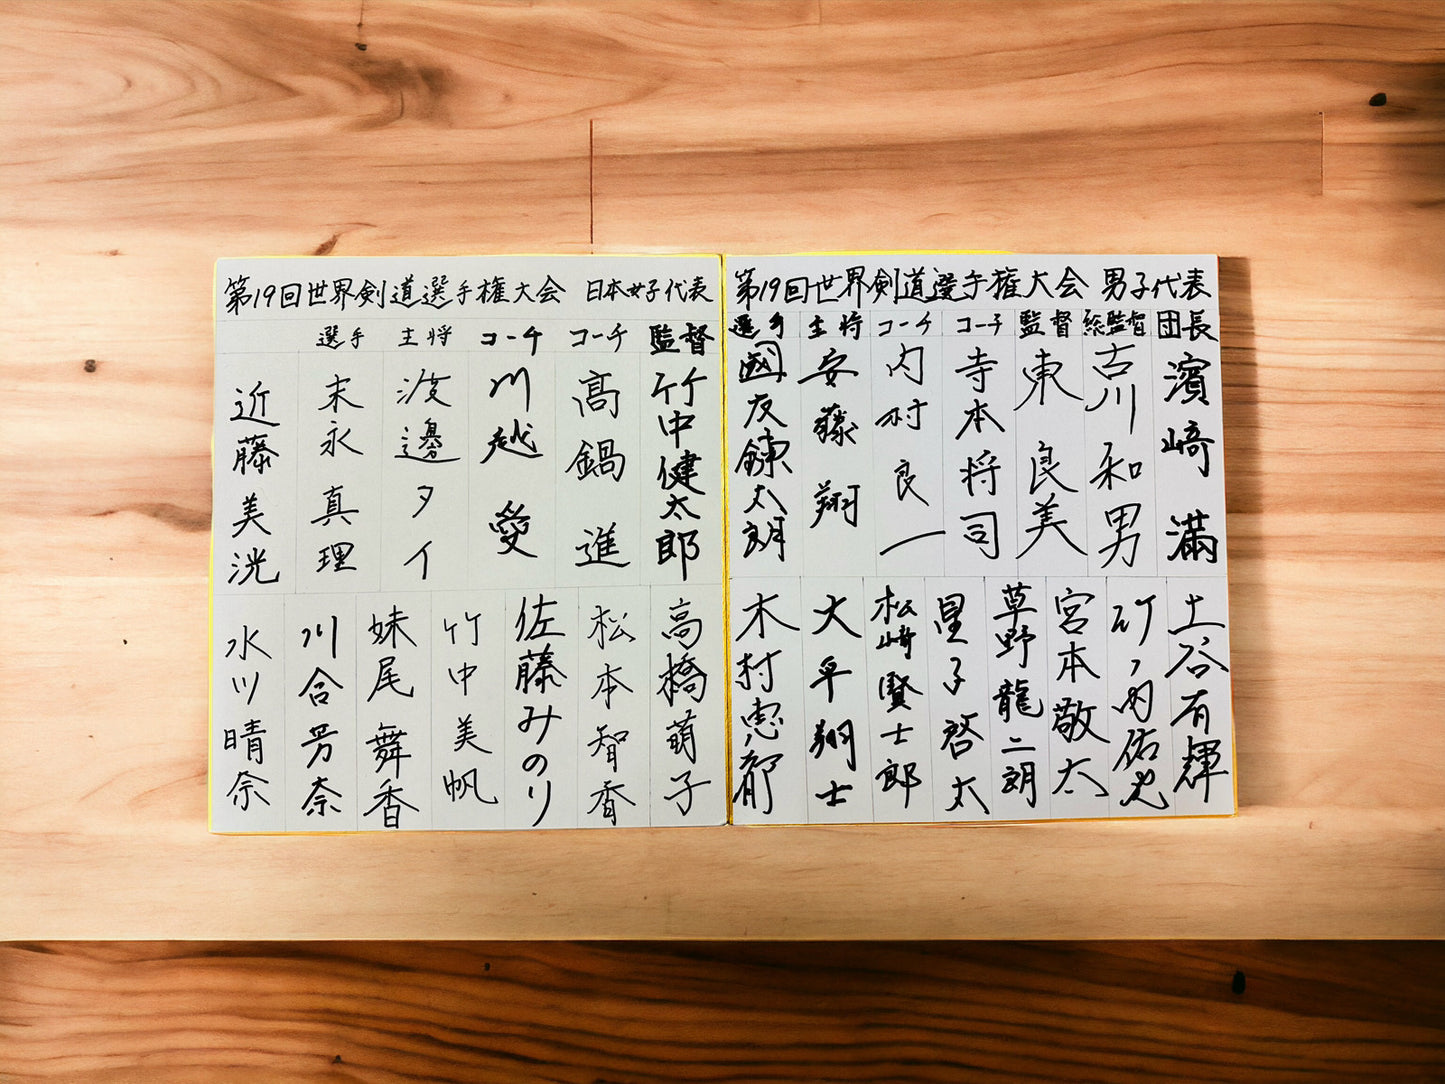 第19回世界剣道選手権大会 男子代表
団長
濱﨑 滿
総監督
古川和男
監督
東良美
コーチ
寺本将司
コーチ
内村良一
主将
安藤翔
選手
國友鍊太朗
土谷有輝
竹ノ内佑也
宮本敬太
草野龍二朗
星子啓太
松﨑賢士郎
大平翔士
木村恵都
第19回世界剣道選手権大会 日本女子代表
監督
竹中健太郎
コーチ
高鍋進
コーチ
川越愛
主将
渡邊タイ
選手
末永真理
近藤美洸
高橋萌子
松本智香
佐藤みのり
竹中美帆
妹尾舞香
川合芳奈
水川晴奈